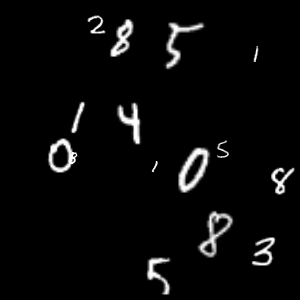 2 8 5 1
1 4
0 8 1 0 5 8
8 3
5